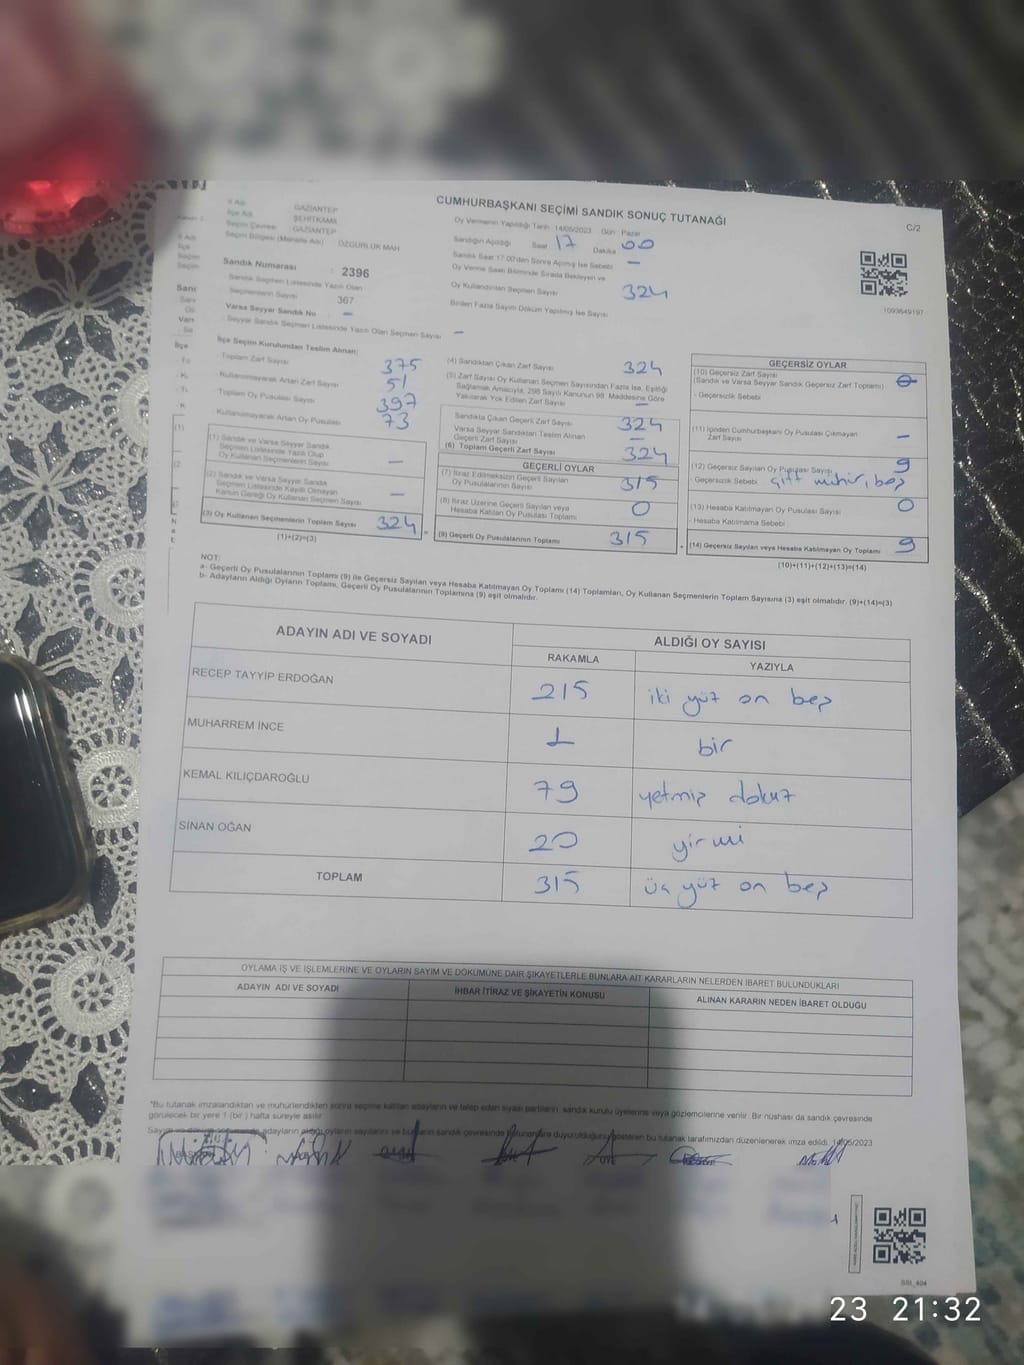 CUMHURBAŞKANI SEÇİMİ SANDIK SONUÇ TUTANAĞI
C/2
İl Adı GAZİANTEP
İlçe Adı ŞEHİTKAMİL
Seçim Çevresi : GAZİANTEP
Seçim Bölgesi (Mahalle Adı) ÖZGÜRLÜK MAH
Sandık Numarası : 2396
Sandık Seçmen Listesinde Yazılı Olan
Seçmenlerin Sayısı 367
Varsa Seyyar Sandık No –
Seyyar Sandık Seçmen Listesinde Yazılı Olan Seçmen Sayısı –
Oy Vermenin Yapıldığı Tarih 14/05/2023 Gün : Pazar
Sandığın Açıldığı Saat 17 Dakika 00
Sandık Saat 17.00'den Sonra Açılmış İse Sebebi –
Oy Verme Saati Bitiminde Sırada Bekleyen ve
Oy Kullandırılan Seçmen Sayısı 324
Birden Fazla Sayım Döküm Yapılmış İse Sayısı
1093649197
İlçe Seçim Kurulundan Teslim Alınan;
Toplam Zarf Sayısı 375
Kullanılmayarak Artan Zarf Sayısı 51
Toplam Oy Pusulası Sayısı 397
Kullanılmayarak Artan Oy Pusulası 73
(1) Sandık ve Varsa Seyyar Sandık
Seçmen Listesinde Yazılı Olup
Oy Kullanan Seçmenlerin Sayısı –
(2) Sandık ve Varsa Seyyar Sandık
Seçmen Listesinde Kayıtlı Olmayan
Kanun Gereği Oy Kullanan Seçmen Sayısı –
(3) Oy Kullanan Seçmenlerin Toplam Sayısı 324
(1)+(2)=(3)
(4) Sandıktan Çıkan Zarf Sayısı 324
(5) Zarf Sayısı Oy Kullanan Seçmen Sayısından Fazla İse, Eşitliği
Sağlamak Amacıyla, 298 Sayılı Kanunun 98. Maddesine Göre
Yakılarak Yok Edilen Zarf Sayısı –
Sandıkta Çıkan Geçerli Zarf Sayısı 324
Varsa Seyyar Sandıktan Teslim Alınan
Geçerli Zarf Sayısı –
(6) Toplam Geçerli Zarf Sayısı 324
GEÇERLİ OYLAR
(7) İtiraz Edilmeksizin Geçerli Sayılan
Oy Pusulalarının Sayısı 315
(8) İtiraz Üzerine Geçerli Sayılan veya
Hesaba Katılan Oy Pusulası Toplamı 0
(9) Geçerli Oy Pusulalarının Toplamı 315
GEÇERSİZ OYLAR
(10) Geçersiz Zarf Sayısı
(Sandık ve Varsa Seyyar Sandık Geçersiz Zarf Toplamı) 0
- Geçersizlik Sebebi
(11) İçinden Cumhurbaşkanı Oy Pusulası Çıkmayan
Zarf Sayısı –
(12) Geçersiz Sayılan Oy Pusulası Sayısı 9
- Geçersizlik Sebebi çift mühür, boş
(13) Hesaba Katılmayan Oy Pusulası Sayısı 0
- Hesaba Katılmama Sebebi
(14) Geçersiz Sayılan veya Hesaba Katılmayan Oy Toplamı 9
(10)+(11)+(12)+(13)=(14)
NOT:
a- Geçerli Oy Pusulalarının Toplamı (9) ile Geçersiz Sayılan veya Hesaba Katılmayan Oy Toplamı (14) Toplamları, Oy Kullanan Seçmenlerin Toplam Sayısına (3) eşit olmalıdır. (9)+(14)=(3)
b- Adayların Aldığı Oyların Toplamı, Geçerli Oy Pusulalarının Toplamına (9) eşit olmalıdır.
ADAYIN ADI VE SOYADI ALDIĞI OY SAYISI
RAKAMLA YAZIYLA
RECEP TAYYİP ERDOĞAN 215 iki yüz on beş
MUHARREM İNCE 1 bir
KEMAL KILIÇDAROĞLU 79 yetmiş dokuz
SİNAN OĞAN 20 yirmi
TOPLAM 315 üç yüz on beş
OYLAMA İŞ VE İŞLEMLERİNE VE OYLARIN SAYIM VE DÖKÜMÜNE DAİR ŞİKAYETLERLE BUNLARA AİT KARARLARIN NELERDEN İBARET BULUNDUKLARI
ADAYIN ADI VE SOYADI İHBAR İTİRAZ VE ŞİKAYETİN KONUSU ALINAN KARARIN NEDEN İBARET OLDUĞU
*Bu tutanak imzalandıktan ve mühürlendikten sonra seçime katılan adayların ve talep eden siyasi partilerin sandık kurulu üyelerine veya gözlemcilerine verilir. Bir nüshası da sandık çevresinde
görülecek bir yere 1 (bir) hafta süreyle asılır
adayların aldığı oyların sayılarını ve bunların sandık çevresinde ilgililere duyurulduğunu gösteren bu tutanak tarafımızdan düzenlenerek imza edildi. 14/05/2023
23 21:32